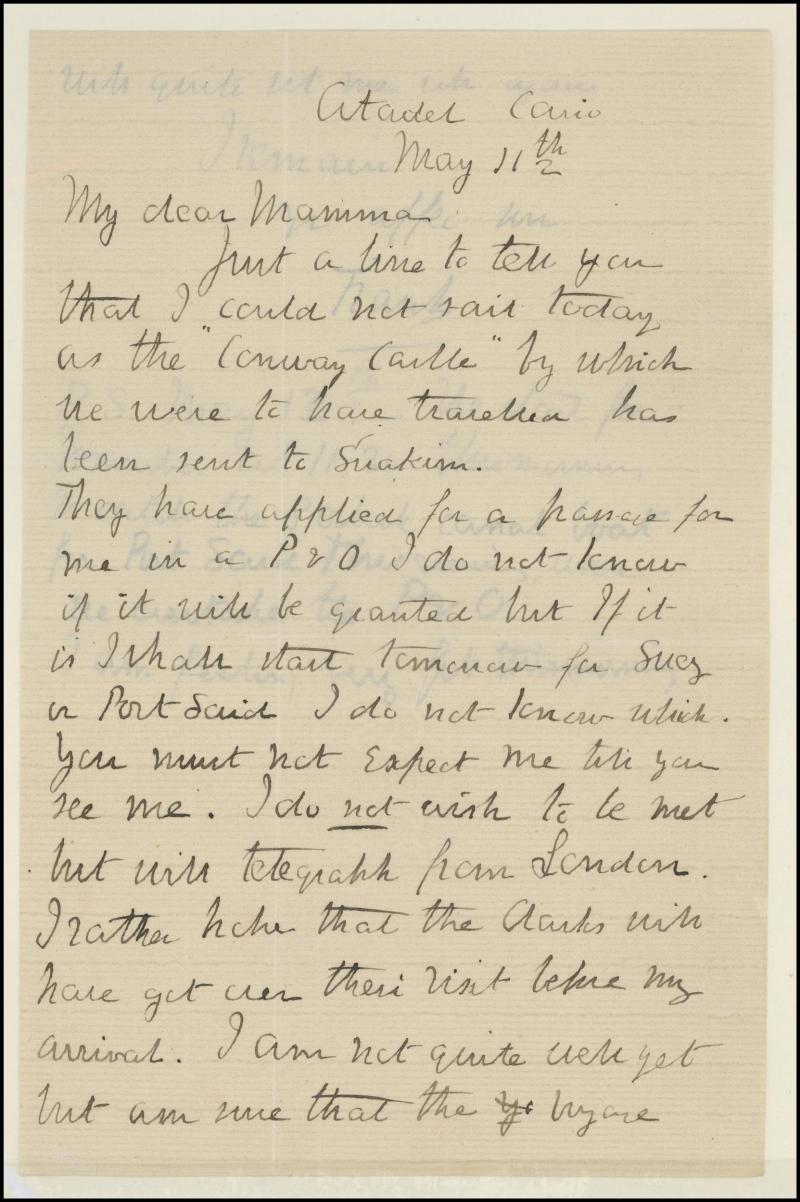 Citadel Cario
May 11th
My dear Mamma
Just a line to tell you
that I could not sail today
as the "Conway Castle" by which
we were to have travelled has
been sent to Suakim.
They have applied for a passage for
me in a P & O I do not know
if it will be granted but If it
is I shall start tomorrow for Suez
or Port Said I do not know which.
You must not Expect me till you
see me. I do not wish to be met
but will telegraph from London.
I rather hope that the Clarks will
have got over their visit before my
arrival. I am not quite well yet
but am sure that the voyage